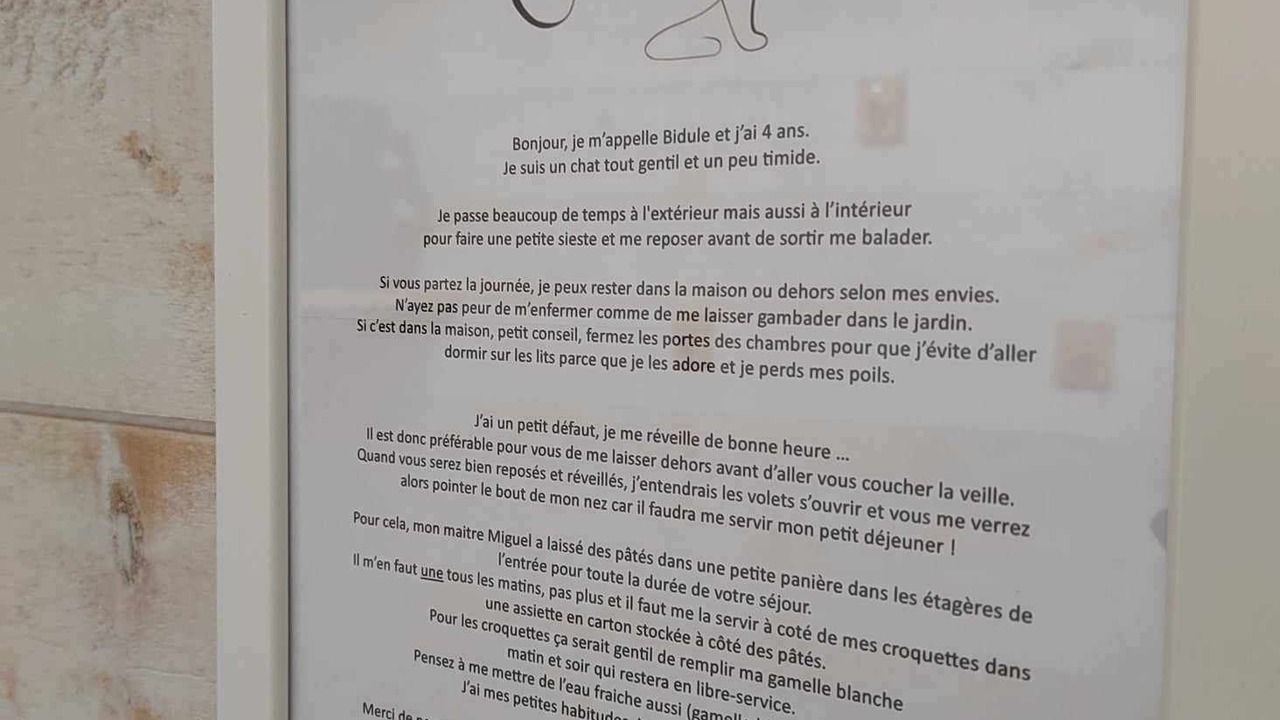 Bonjour, je m'appelle Bidule et j'ai 4 ans.
Je suis un chat tout gentil et un peu timide.
Je passe beaucoup de temps à l'extérieur mais aussi à l'intérieur
pour faire une petite sieste et me reposer avant de sortir me balader.
Si vous partez la journée, je peux rester dans la maison ou dehors selon mes envies.
N'ayez pas peur de m'enfermer comme de me laisser gambader dans le jardin.
Si c'est dans la maison, petit conseil, fermez les portes des chambres pour que j'évite d'aller
dormir sur les lits parce que je les adore et je perds mes poils.
J'ai un petit défaut, je me réveille de bonne heure ...
Il est donc préférable pour vous de me laisser dehors avant d'aller vous coucher la veille.
Quand vous serez bien reposés et réveillés, j'entendrais les volets s'ouvrir et vous me verrez
alors pointer le bout de mon nez car il faudra me servir mon petit déjeuner !
Pour cela, mon maitre Miguel a laissé des pâtés dans une petite panière dans les étagères de
l'entrée pour toute la durée de votre séjour.
Il m'en faut une tous les matins, pas plus et il faut me la servir à coté de mes croquettes dans
une assiette en carton stockée à côté des pâtés.
Pour les croquettes ça serait gentil de remplir ma gamelle blanche
matin et soir qui restera en libre-service.
Pensez à me mettre de l'eau fraiche aussi
J'ai mes petites
Merci de